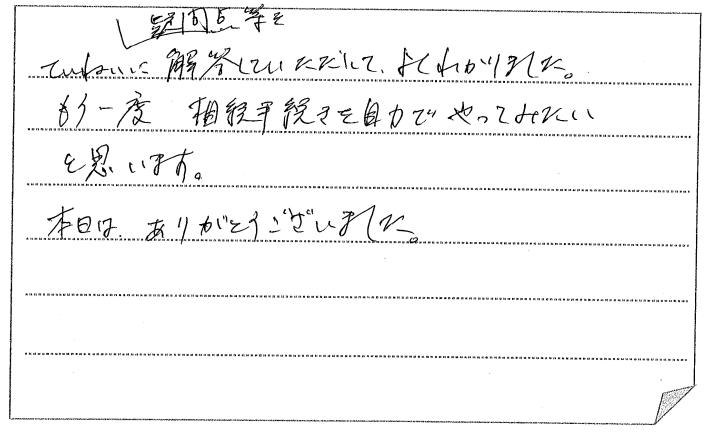 疑問点等を
ていねいに解答していただいて、よくわかりました。
もう一度 相続手続きを自力でやってみたい
と思います。
本日は、ありがとうございました。